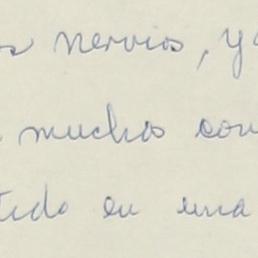 os nervios, ya
muchos con
tido en una